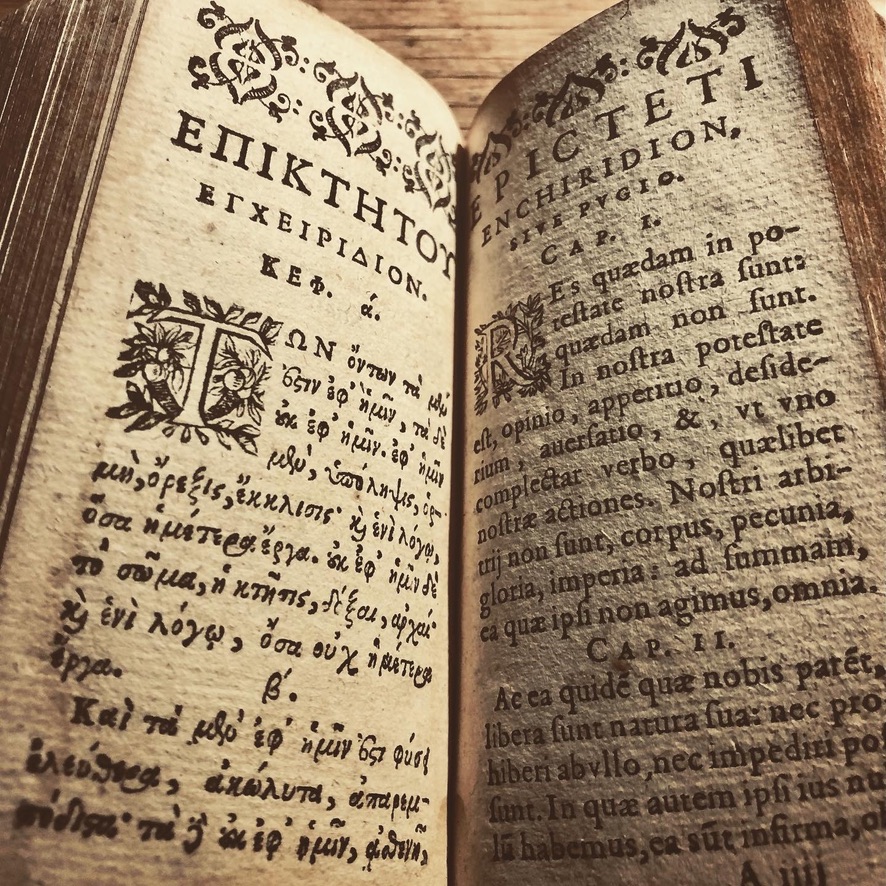 ΕΠΙΚΤΗΤΟΥ
ΕΓΧΕΙΡΙΔΙΟΝ.
ΚΕΦ. ά.
ΤΩΝ ὄντων τὰ μὲν
ἐστιν ἐφ' ἡμῖν, τὰ δὲ
οὐκ ἐφ' ἡμῖν. ἐφ' ἡμῖν
μὲν, ὑπόληψις, ὁρ-
μὴ, ὄρεξις, ἔκκλισις· καὶ ἑνὶ λόγῳ,
ὅσα ἡμέτερα ἔργα. οὐκ ἐφ' ἡμῖν δὲ
τὸ σῶμα, ἡ κτῆσις, δόξαι, ἀρχαί·
καὶ ἑνὶ λόγῳ, ὅσα οὐχ ἡμέτερα
ἔργα.
β'.
Καὶ τὰ μὲν ἐφ' ἡμῖν ἐστι φύσει
ἐλεύθερα, ἀκώλυτα, ἀπαρεμ-
πόδιστα· τὰ δὲ οὐκ ἐφ' ἡμῖν, ἀσθενῆ,
EPICTETI
ENCHIRIDION,
SIVE PVGIO.
CAP. I.
REs quædam in po-
teſtate noſtra ſunt:
quædam non ſunt.
In noſtra poteſtate
eſt, opinio, appetitio, deſide-
rium, auerſatio, &, vt vno
complectar verbo, quælibet
noſtræ actiones. Noſtri arbi-
trij non ſunt, corpus, pecunia,
gloria, imperia: ad ſummam,
ea quæ ipſi non agimus, omnia.
CAP. II.
Ac ea quidē quæ nobis parēt,
libera ſunt natura ſua: nec pro
hiberi ab vllo, nec impediri po
ſunt. In quæ autem ipſi ius nu
lū habemus, ea sūt infirma,
A iiij